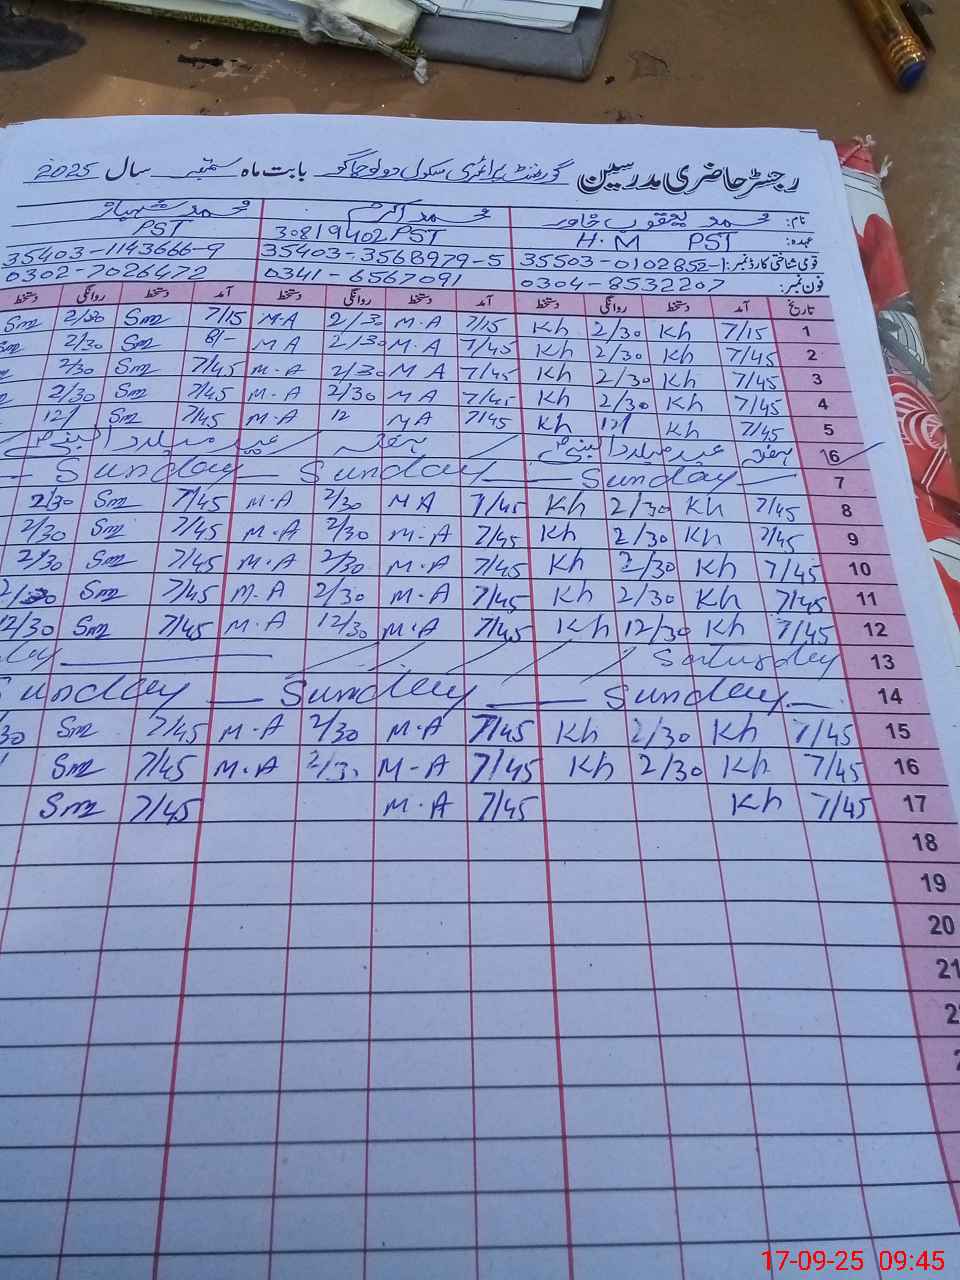 رجسٹر حاضری مدرسین گورنمنٹ پرائمری سکول بابت ماہ ستمبر سال 2025
نام: محمد یعقوب خاور محمد اکرم محمد شہباز
عہدہ: H.M PST 30819402 PST PST
قومی شناختی کارڈ نمبر: 35503-0102852-1 35403-3568979-5 35403-1143666-9
فون نمبر: 0304-8532207 0341-6567091 0302-7026472
تاریخ آمد دستخط روانگی دستخط آمد دستخط روانگی دستخط آمد دستخط روانگی دستخط
1 7/15 Kh 2/30 Kh 7/15 M.A 2/30 M.A 7/15 Sm 2/30 Sm
2 7/45 Kh 2/30 Kh 7/45 M.A 2/30 M A 8/- Sm 2/30 Sm
3 7/45 Kh 2/30 Kh 7/45 M A 2/30 M.A 7/45 Sm 2/30
4 7/45 Kh 2/30 Kh 7/45 M A 2/30 M.A 7/45 Sm 2/30
5 7/45 Kh 12/ Kh 7/45 M A 12 M.A 7/45 Sm 12/
6 ہفتہ عید میلاد النبیؐ ہفتہ عید میلاد النبیؐ
7 Sunday Sunday Sunday
8 7/45 Kh 2/30 Kh 7/45 M A 2/30 M.A 7/45 Sm 2/30
9 7/45 Kh 2/30 Kh 7/45 M.A 2/30 M.A 7/45 Sm 2/30
10 7/45 Kh 2/30 Kh 7/45 M.A 2/30 M.A 7/45 Sm 2/30
11 7/45 Kh 2/30 Kh 7/45 M.A 2/30 M.A 7/45 Sm 2/30
12 7/45 Kh 12/30 Kh 7/45 M.A 12/30 M.A 7/45 Sm 12/30
13 Saturday
14 Sunday Sunday Sunday
15 7/45 Kh 2/30 Kh 7/45 M.A 2/30 M.A 7/45 Sm 30
16 7/45 Kh 2/30 Kh 7/45 M-A 2/30 M.A 7/45 Sm
17 7/45 Kh 7/45 M.A 7/45 Sm
18
19
20
21
17-09-25 09:45